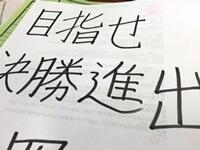 目指せ
決勝進出